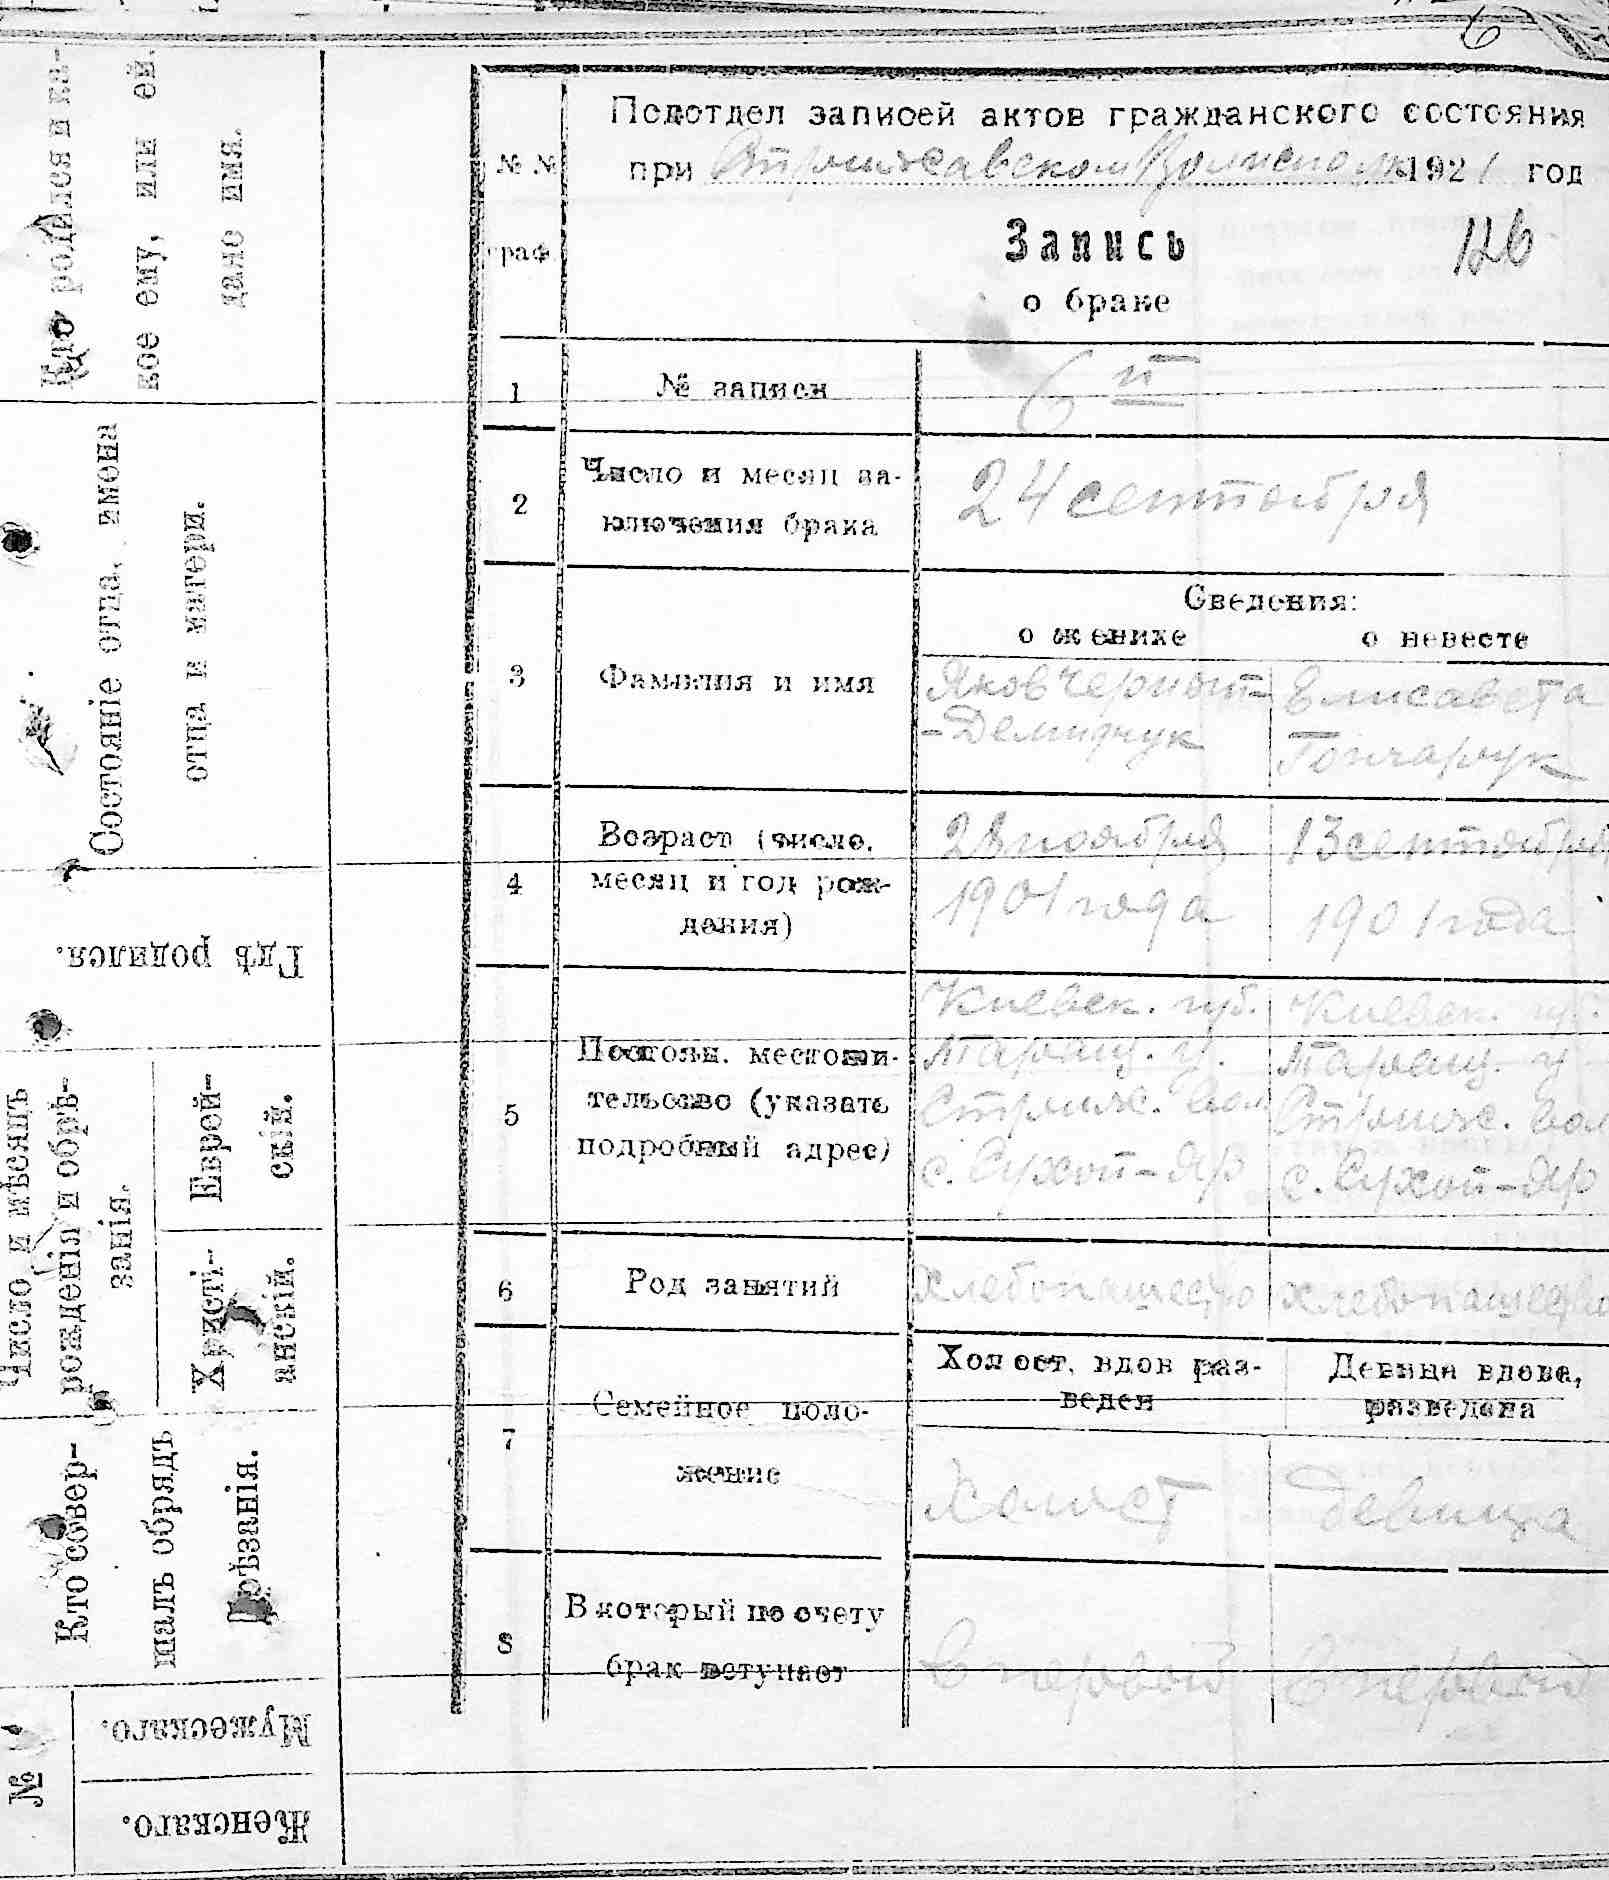 6
Подотдел записей актов гражданского состояния
при Стрижавском Волисполк. 1921 год
№ №
граф.
Запись
126
о браке
1 № записи 6 й
2 Число и месяц за-
ключения брака
24 сентября
Сведения:
о женихе о невесте
3 Фамилия и имя
Яков Черный- Елисавета
-Демидчук Гончарук
4 Возраст (число,
месяц и год рож-
дения)
28 ноября 13 сентября
1901 года 1901 года
5 Постоян. местожи-
тельство (указать
подробный адрес)
Киевск. губ. Киевск. губ.
Таращ. у. Таращ. у
Стриж. вол Стриж. вол
с. Сухой-Яр с. Сухой-Яр
6 Род занятий хлебопашество хлебопашество
7 Семейное поло-
жение
Холост, вдов раз-
веден
Девица вдова,
разведена
Холост Девица
8 В который по счету
брак вступает
в первый в первый
Кто родился и ка-
кое ему, или ей.
дано имя.
Состояніе отца, имена
отца и матери.
Гдѣ родился.
Число и мѣсяцъ
рожденія и обрѣ-
занія.
Еврей-
скій.
Христі-
анскій.
Кто совер-
шалъ обрядъ
обрѣзанія.
№
Мужескаго.
Женскаго.